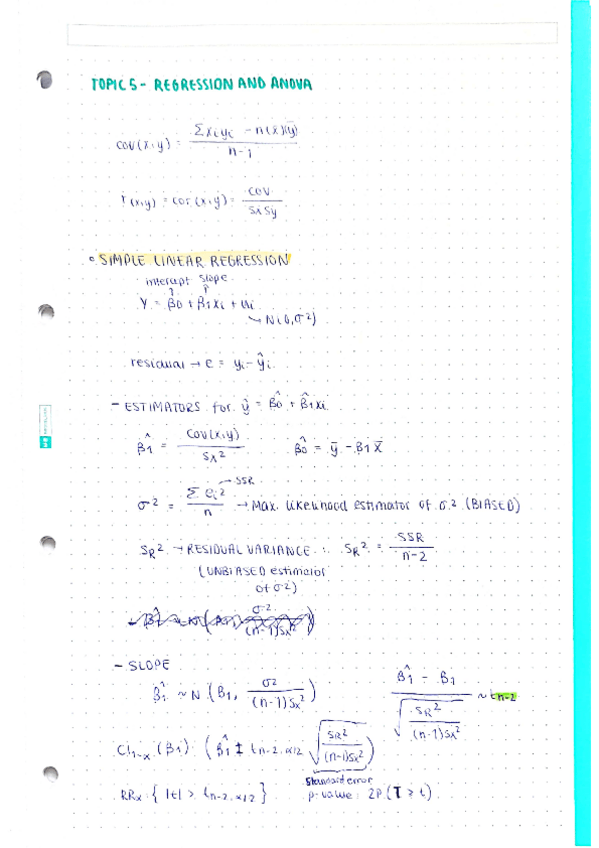 TOPIC 5 - REGRESSION AND ANOVA
cov(x,y) = (Σxiyi - n(x̄)(ȳ)) / (n-1)
r(x,y) = cor(x,y) = cov / (sx sy)
• SIMPLE LINEAR REGRESSION
intercept slope
Y = β0 + β1xi + ui
↳ N(0,σ²)
residual → e = yi - ŷi
- ESTIMATORS for ŷ = β̂0 + β̂1xi
β̂1 = cov(x,y) / sx² β̂0 = ȳ - β1x̄
σ² = Σei² / n → Max. likelihood estimator of σ² (BIASED)
← SSR
SR² → RESIDUAL VARIANCE : SR² = SSR / (n-2)
(UNBIASED estimator
of σ²)
- SLOPE
β̂1 ~ N(β1, σ² / ((n-1)sx²)) (β̂1 - β1) / √(SR² / ((n-1)sx²)) ~ tn-2
CI1-α(β1): (β̂1 ± tn-2,α/2 √(SR² / ((n-1)sx²)))
Standard error
RRα { |t| > tn-2,α/2 } p-value: 2P(T > t)